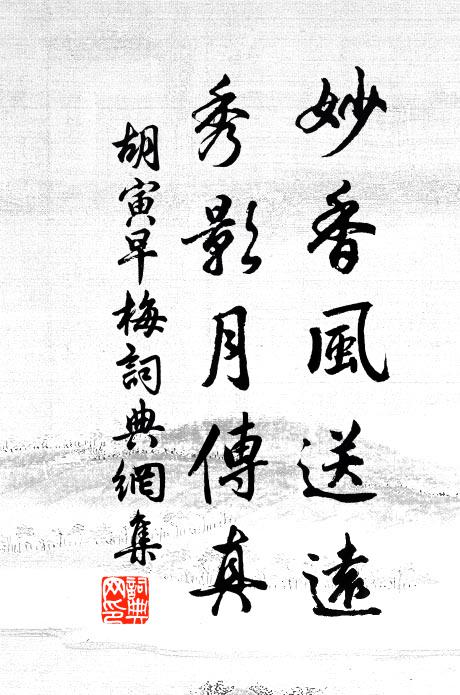 妙香風送遠
秀影月傳真
胡寅早梅詞典網集
詞典
网印